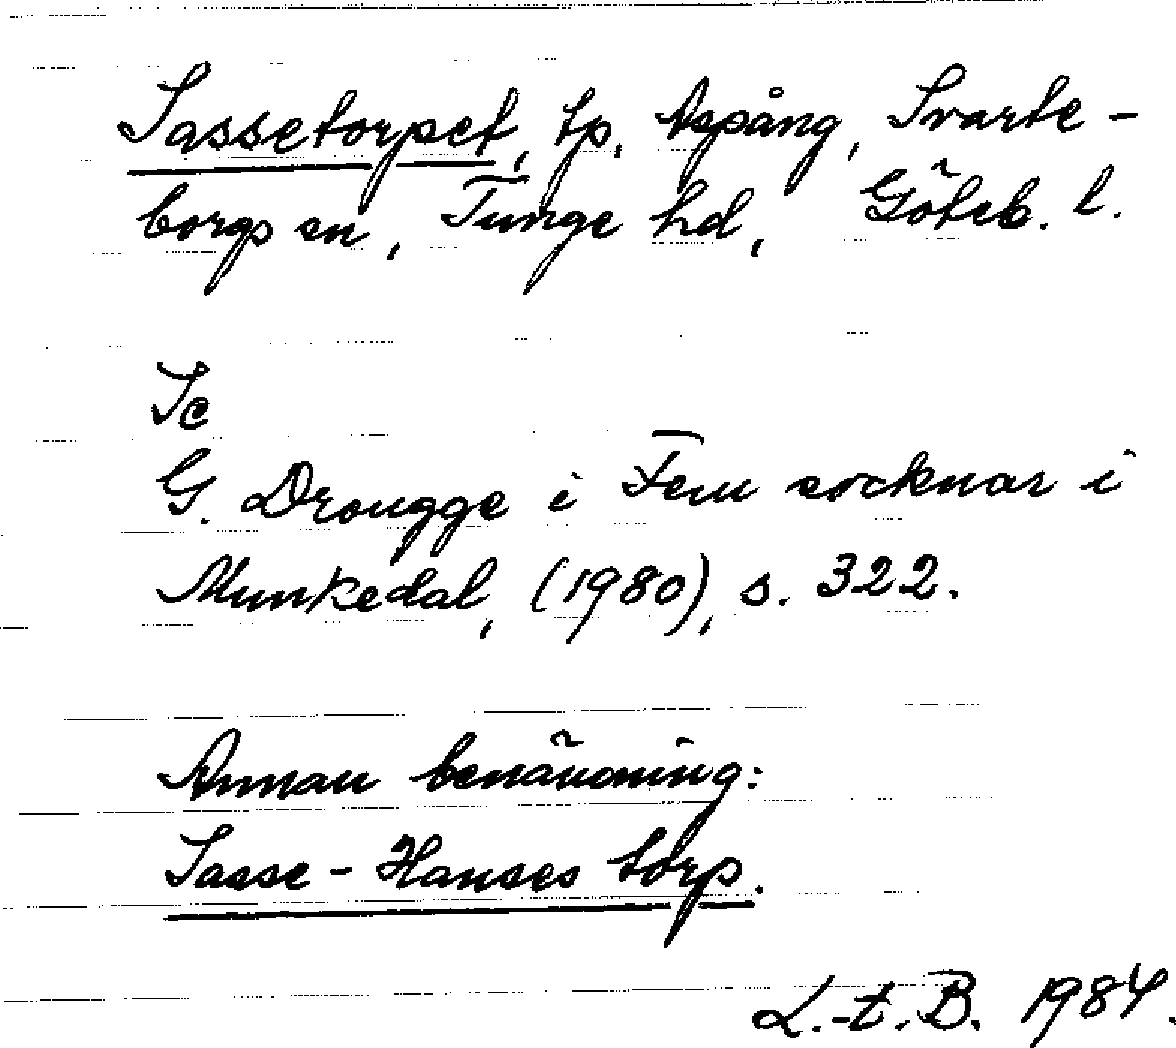 Sassetorpet, tp, Aspång, Svarte-
borgs sn, Tunge hd, Göteb. l.
Se
G. Drougge i Fem socknar i
Munkedal, (1980), s. 322.
Annan benämning:
Sasse-Hanses torp.
L.-t. B. 1984.